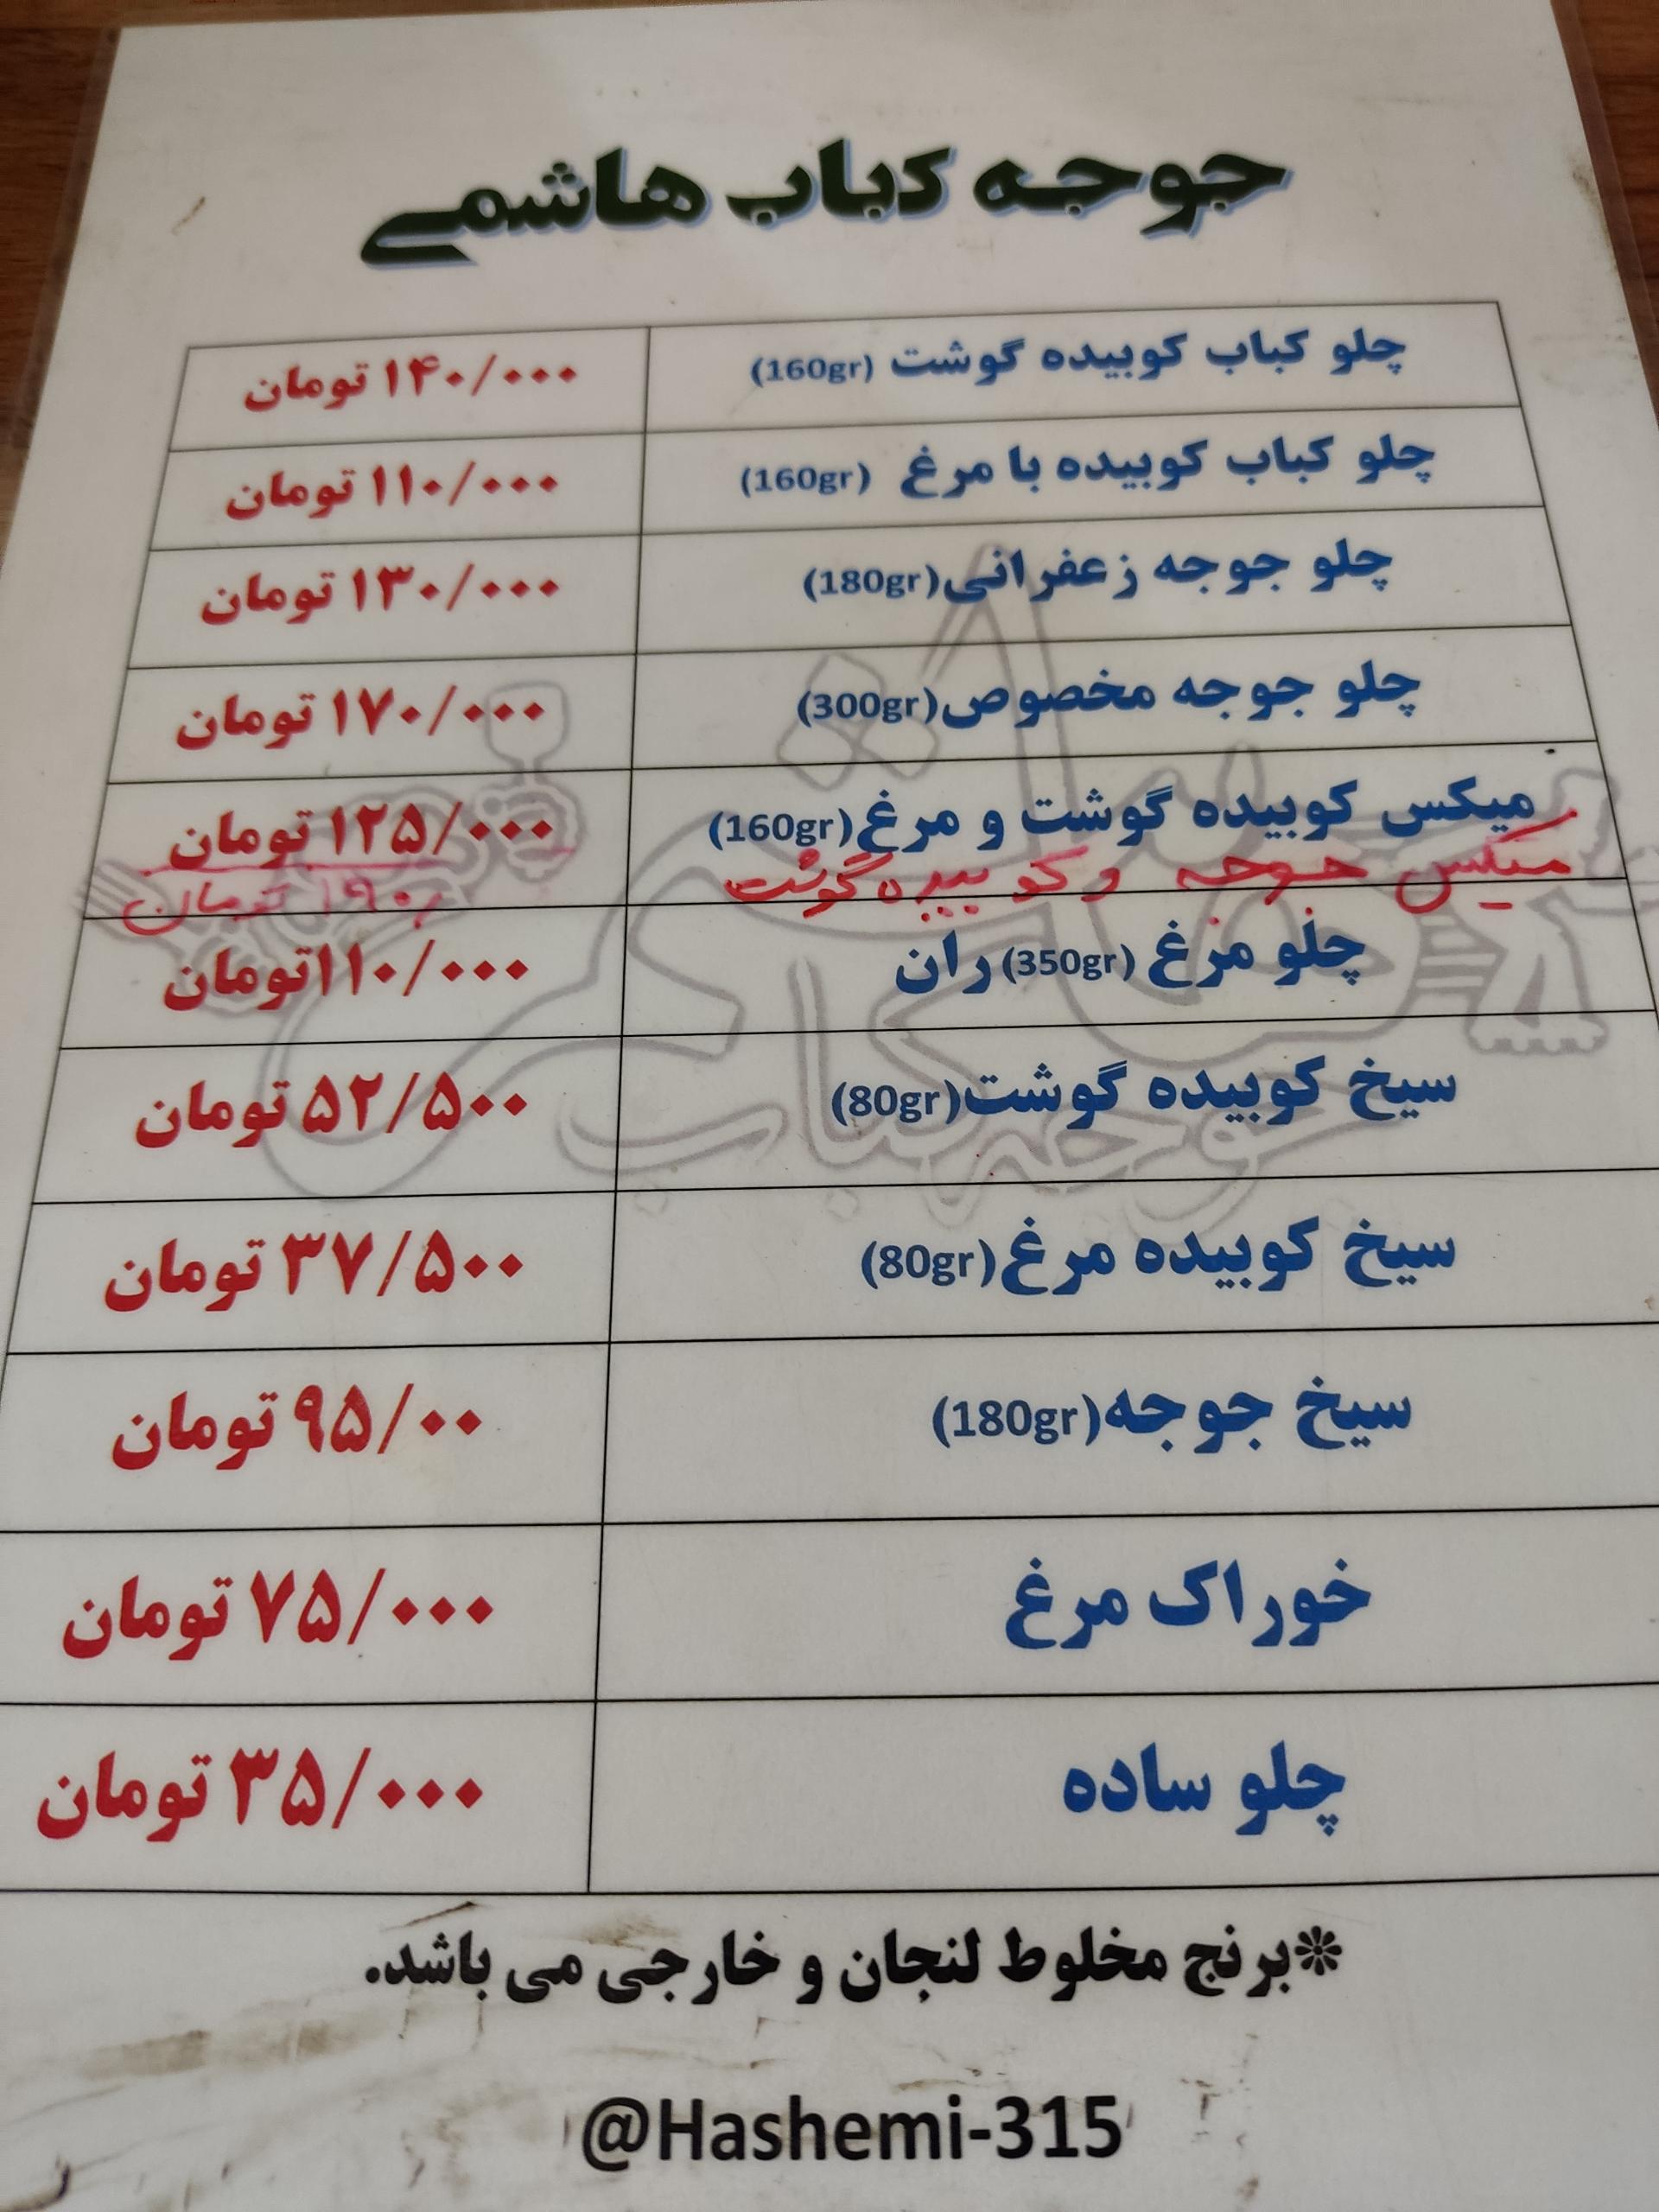 جوجه کباب هاشمی
چلو کباب کوبیده گوشت (160gr) ۱۴۰/۰۰۰ تومان
چلو کباب کوبیده با مرغ (160gr) ۱۱۰/۰۰۰ تومان
چلو جوجه زعفرانی(180gr) ۱۳۰/۰۰۰ تومان
چلو جوجه مخصوص(300gr) ۱۷۰/۰۰۰ تومان
میکس کوبیده گوشت و مرغ(160gr) ۱۲۵/۰۰۰ تومان
میکس جوجه و کوبیده گوشت ۱۹۰/ تومان
چلو مرغ (350gr) ران ۱۱۰/۰۰۰تومان
سیخ کوبیده گوشت(80gr) ۵۲/۵۰۰ تومان
سیخ کوبیده مرغ(80gr) ۳۷/۵۰۰ تومان
سیخ جوجه(180gr) ۹۵/۰۰ تومان
خوراک مرغ ۷۵/۰۰۰ تومان
چلو ساده ۳۵/۰۰۰ تومان
❊برنج مخلوط لنجان و خارجی می باشد.
@Hashemi-315